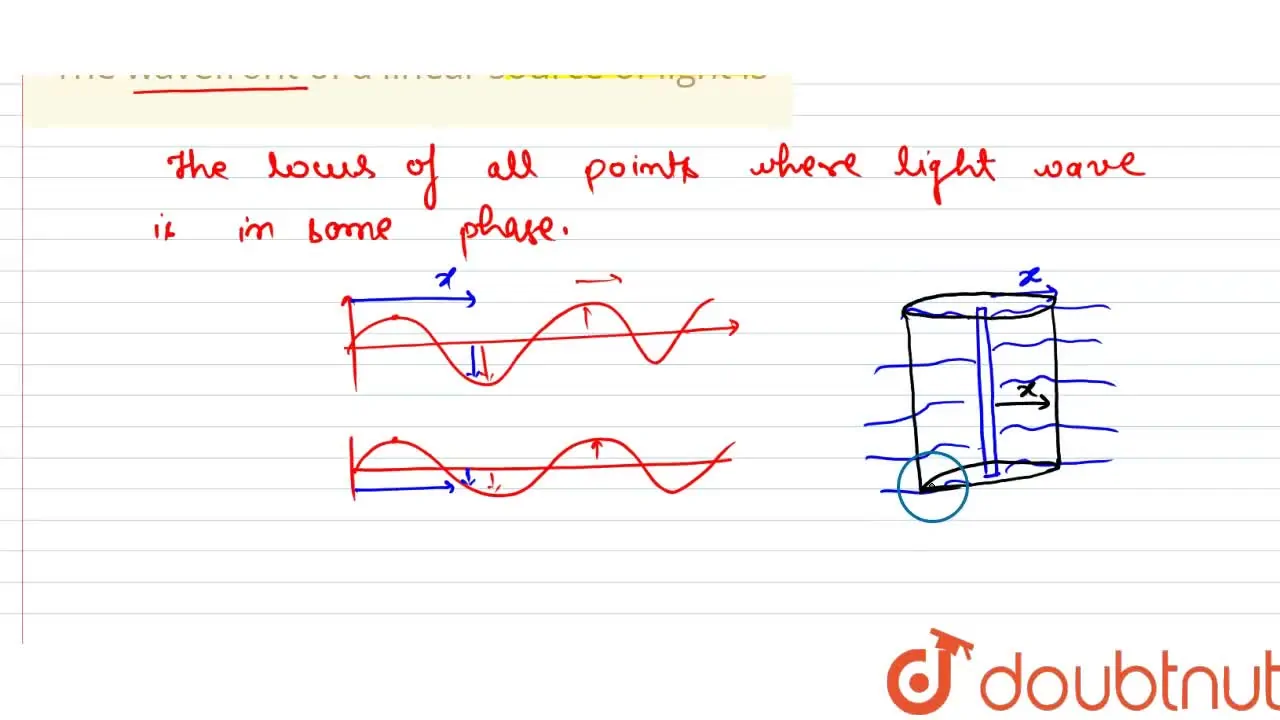 The wavefront of a linear source of light is
The locus of all points where light wave
is in same phase.
x
x
x
doubtnut